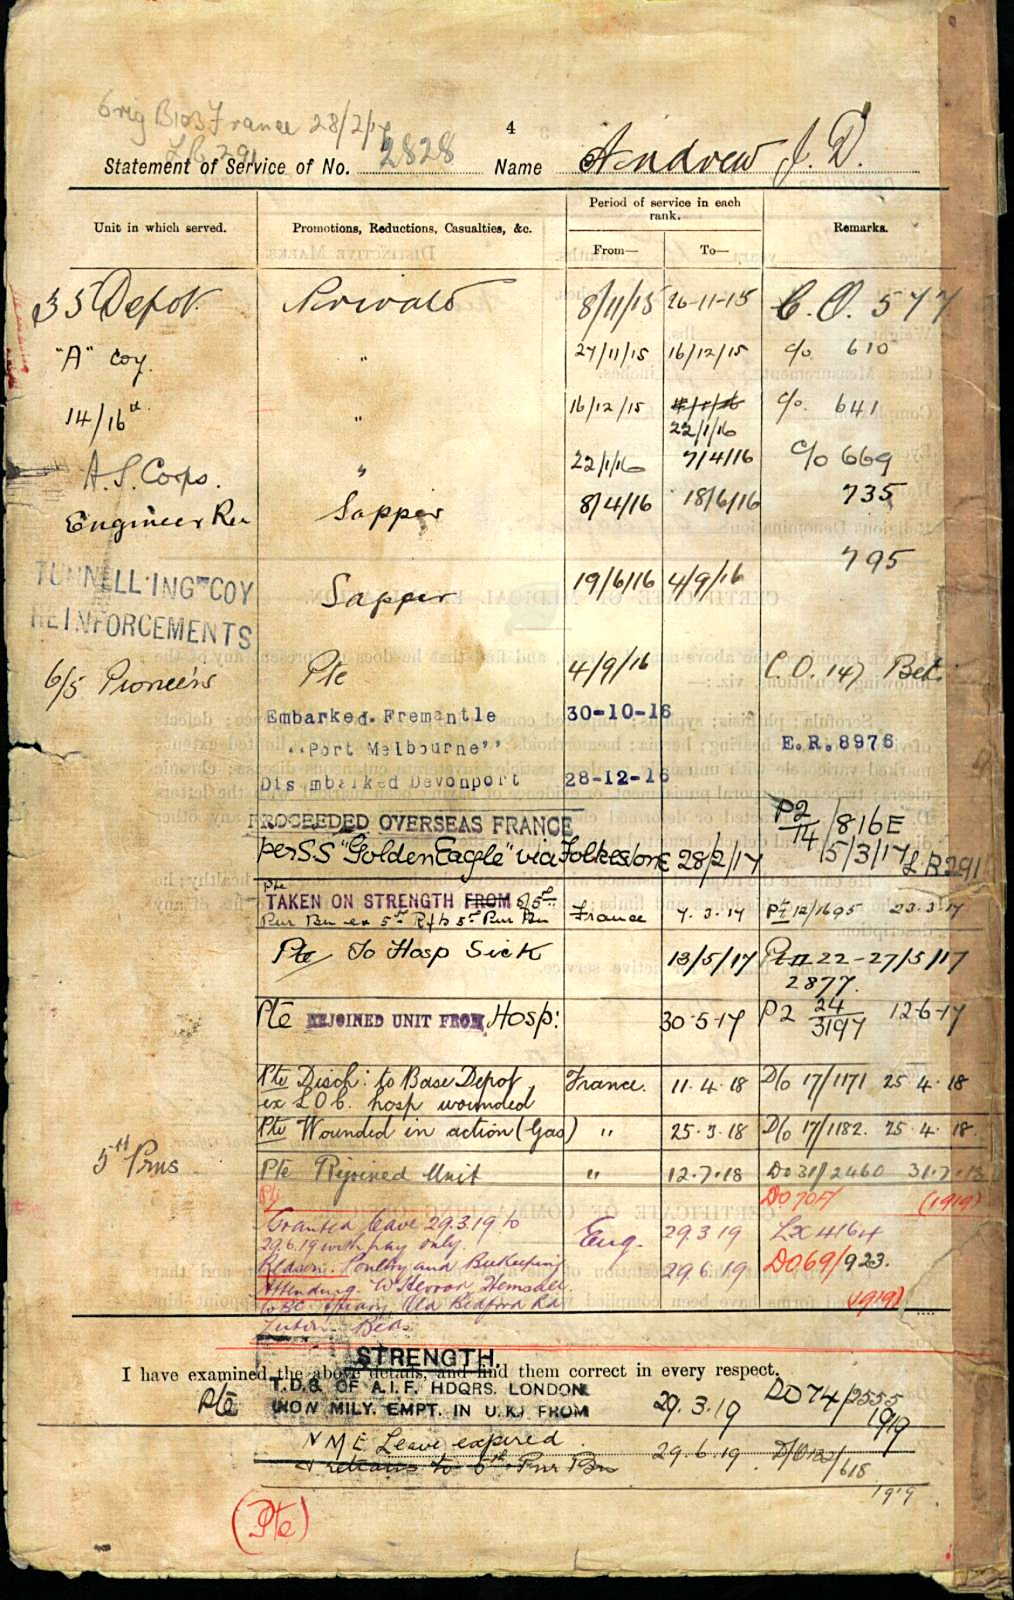 Orig B103 France 28/2/17
4
Statement of Service of No. 2828 Name Andrew J. D.
Unit in which served. Promotions, Reductions, Casualties, &c. Period of service in each rank. Remarks.
From— To—
35 Depot Private 8/11/15 26-11-15 C.O. 577
"A" Coy. " 27/11/15 16/12/15 c/o 610
14/16th " 16/12/15 c/o. 641
22/1/16
A.S. Corps. " 22/1/16 7/4/16 c/o 669
Engineer Sapper 8/4/16 18/6/16 735
TUNNELLING COY REINFORCEMENTS Sapper 19/6/16 4/9/16 795
6/5 Pioneers Pte 4/9/16 C.O. 147
Embarked. Fremantle 30-10-16
"Port Melbourne" E.R.8976
Disembarked Devonport 28-12-16
PROCEEDED OVERSEAS FRANCE P2/14/816E
per SS "Golden Eagle" via Folkestone 28/2/17 15/3/17 LR291
Pte
TAKEN ON STRENGTH FROM 5th
Pnr Bn ex 5th Rfts 5th Pnr Bn France 7.3.17 Pt II 12/1695 23.3.17
Pte To Hosp Sick 13/5/17 Pt II 22-27/5/17
2877.
Pte REJOINED UNIT FROM Hosp: 30-5-17 P2 24/3197 12-6-17
Pte Disch: to Base Depot France. 11.4.18 D/o 17/1171 25.4.18
ex hosp wounded
Pte Wounded in action (Gas) " 25.3.18 D/o 17/1182. 25.4.18.
5th Pnrs Pte Rejoined Unit " 12.7.18 Do 31/2460 31.7.18
Pte DO70A (1919)
Granted leave 29.3.19 to Eng. 29.3.19 LX4164
29.6.19 with pay only.
Reason. Poultry and Beekeeping 29.6.19 DO69/923.
Attending. (1919)
Beds.
STRENGTH.
I have examined the above details, and find them correct in every respect.
Pte T.D.S. OF A.I.F. HDQRS. LONDON 29.3.19 DO74/3555
(NON MILY. EMPT. IN U.K.) FROM 1919
NME Leave expired 29.6.19
& returns to 5th Pnr Bn 1919
(Pte)